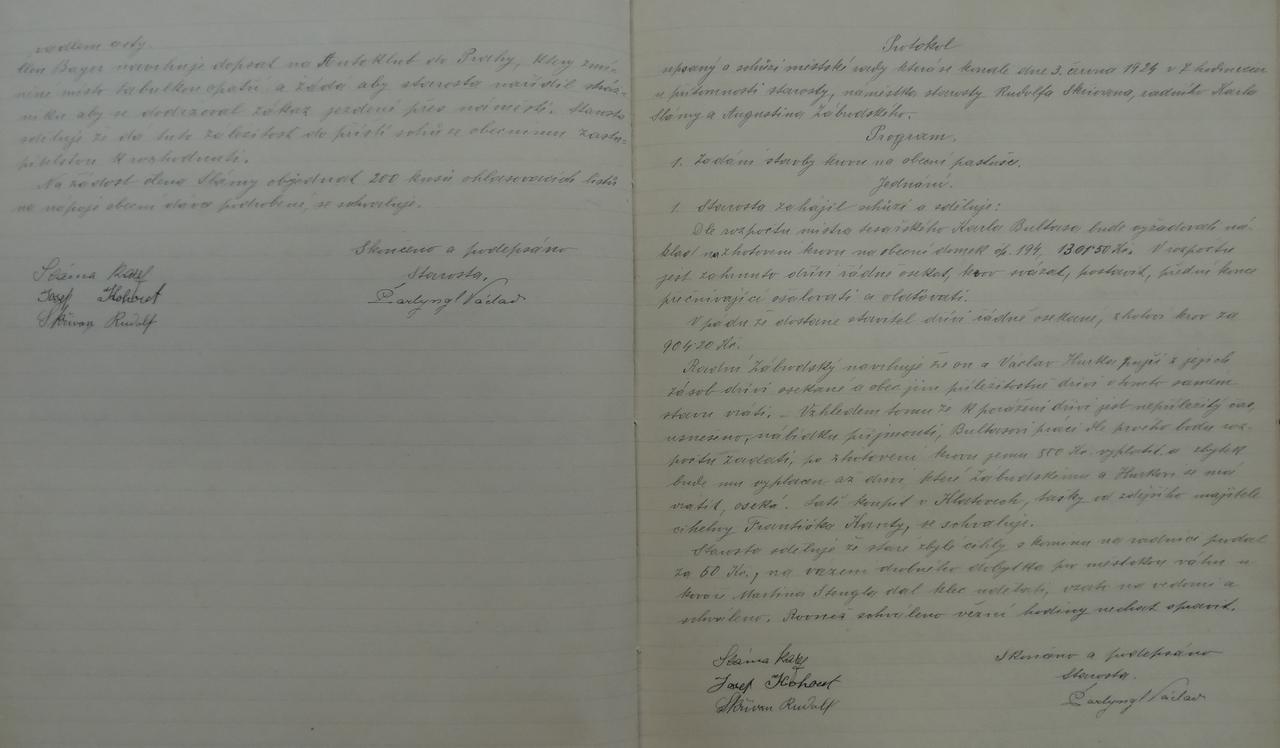 vedlem cesty.
Člen Bayer navrhuje dopsat na Autoklub do Prahy, který zmí-
něné místo tabulkou opatří, a žádá aby starosta nařídil stráž-
níku aby se dodržoval zákaz jezdění přes náměstí. Starosta
sděluje že dá tuto záležitost do příští schůze obecnímu zastu-
pitelstvu k rozhodnutí.
Na žádost člena Slámy objednat 200 kusů ohlašovacích listů
na nápoje obecní dávce podrobené, se schvaluje.
Skončeno a podepsáno
Starosta,
Sláma Karel
Josef Kohout
Skřivan Rudolf
Parlyngl Václav
Protokol
sepsaný o schůzi městské rady která se konala dne 3. června 1924 v 7 hodin
u přítomnosti starosty, náměstka starosty Rudolfa Skřivana, radního Karla
Slámy a Augustina Zábrodského.
Program.
1. Zadání stavby krovu na obecní pastušce.
Jednání.
1. Starosta zahájil schůzi a sděluje:
Dle rozpočtu mistra tesařského Karla Bultasa bude vyžadovati ná-
klad na zhotovení krovu na obecní domek čp. 194, 1301·50 Kč. V rozpočtu
jest zahrnuto dříví řádně osekat, krov svázat, postavit, přední konce
přečnívající ošalovati a olaťovati.
V pádu že dostane stavitel dříví řádně osekané, zhotoví krov za
904·20 Kč.
Radní Zábrodský navrhuje že on a Václav Hurka půjčí z jejich
zásob dříví osekané a obec jim příležitostně dříví v tomto samém
stavu vrátí. – Vzhledem tomu že k porážení dříví jest nepříležitý čas,
usneseno, nabídku přijmouti, Bultasovi práci dle prvého bodu roz-
počtu zadati, po zhotovení krovu jemu 550 Kč. vyplatit a zbytek
bude mu vyplacen až dříví, které Zábrodskému a Hurkovi se má
vrátit, oseká. Latě koupit v Klatovech, tašky od zdejšího majitele
cihelny Františka Kandy, se schvaluje.
Starosta sděluje že staré zbylé cihly s komínu na radnici prodal
za 60 Kč., na vážení drobného dobytka pro městskou váhu u
kováře Martina Stengla dal klec udělati, vzato na vědomí a
schváleno. Rovněž schváleno věžní hodiny nechat spravit.
Skonáno a podepsáno
Starosta.
Sláma Karel
Josef Kohout
Skřivan Rudolf
Parlyngl Václav